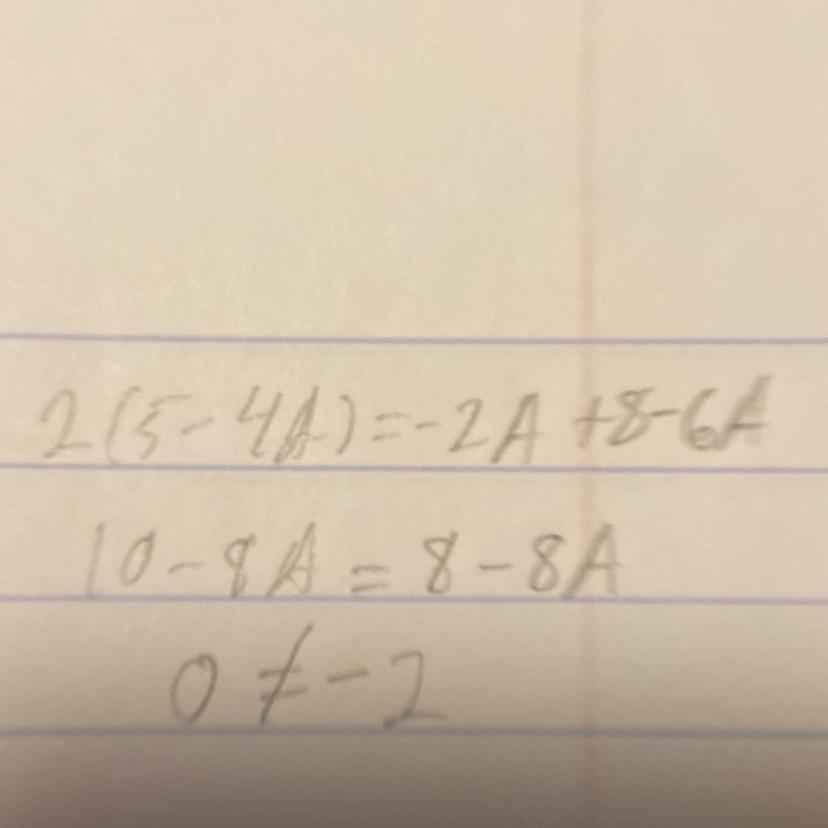 2(5-4A)=-2A+8-6A
10-8A=8-8A
0≠-2